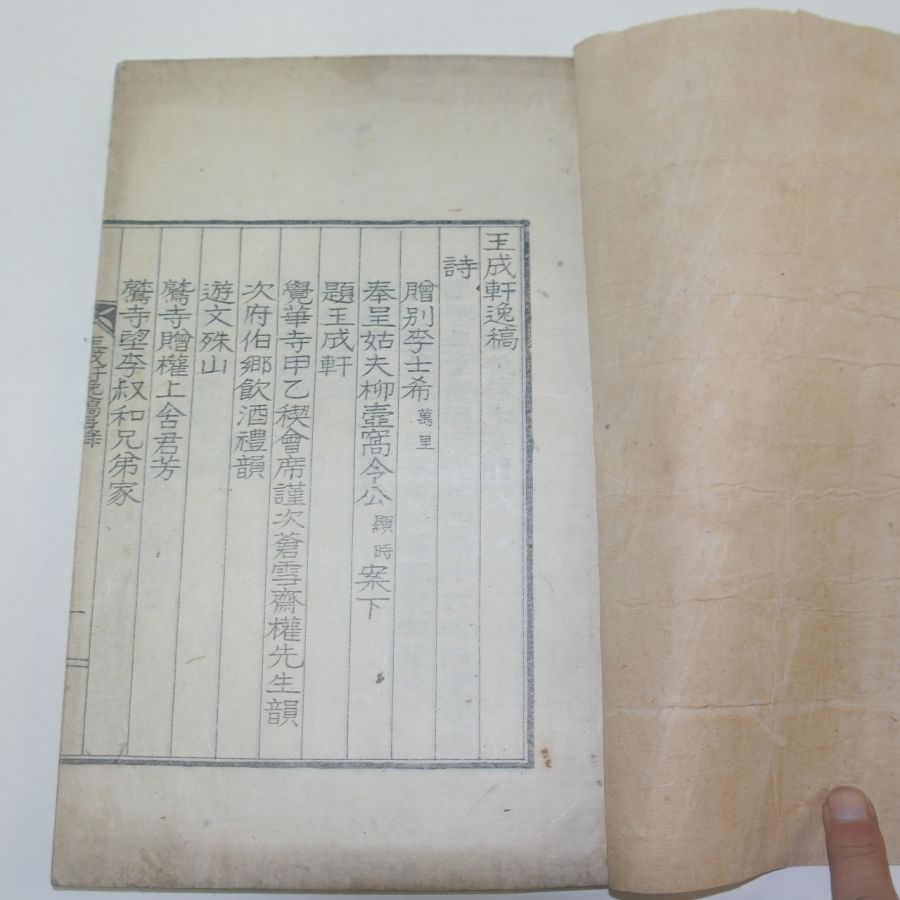 玉成軒逸稿
詩
贈別李士希 萬里
奉呈姑夫柳壼窩令公 顯時 案下
題玉成軒
覺華寺甲乙稧會席謹次蒼雪齋權先生韻
次府伯鄉飮酒禮韻
遊文殊山
鷲寺贈權上舍君芳
鷲寺望李叔和兄弟家